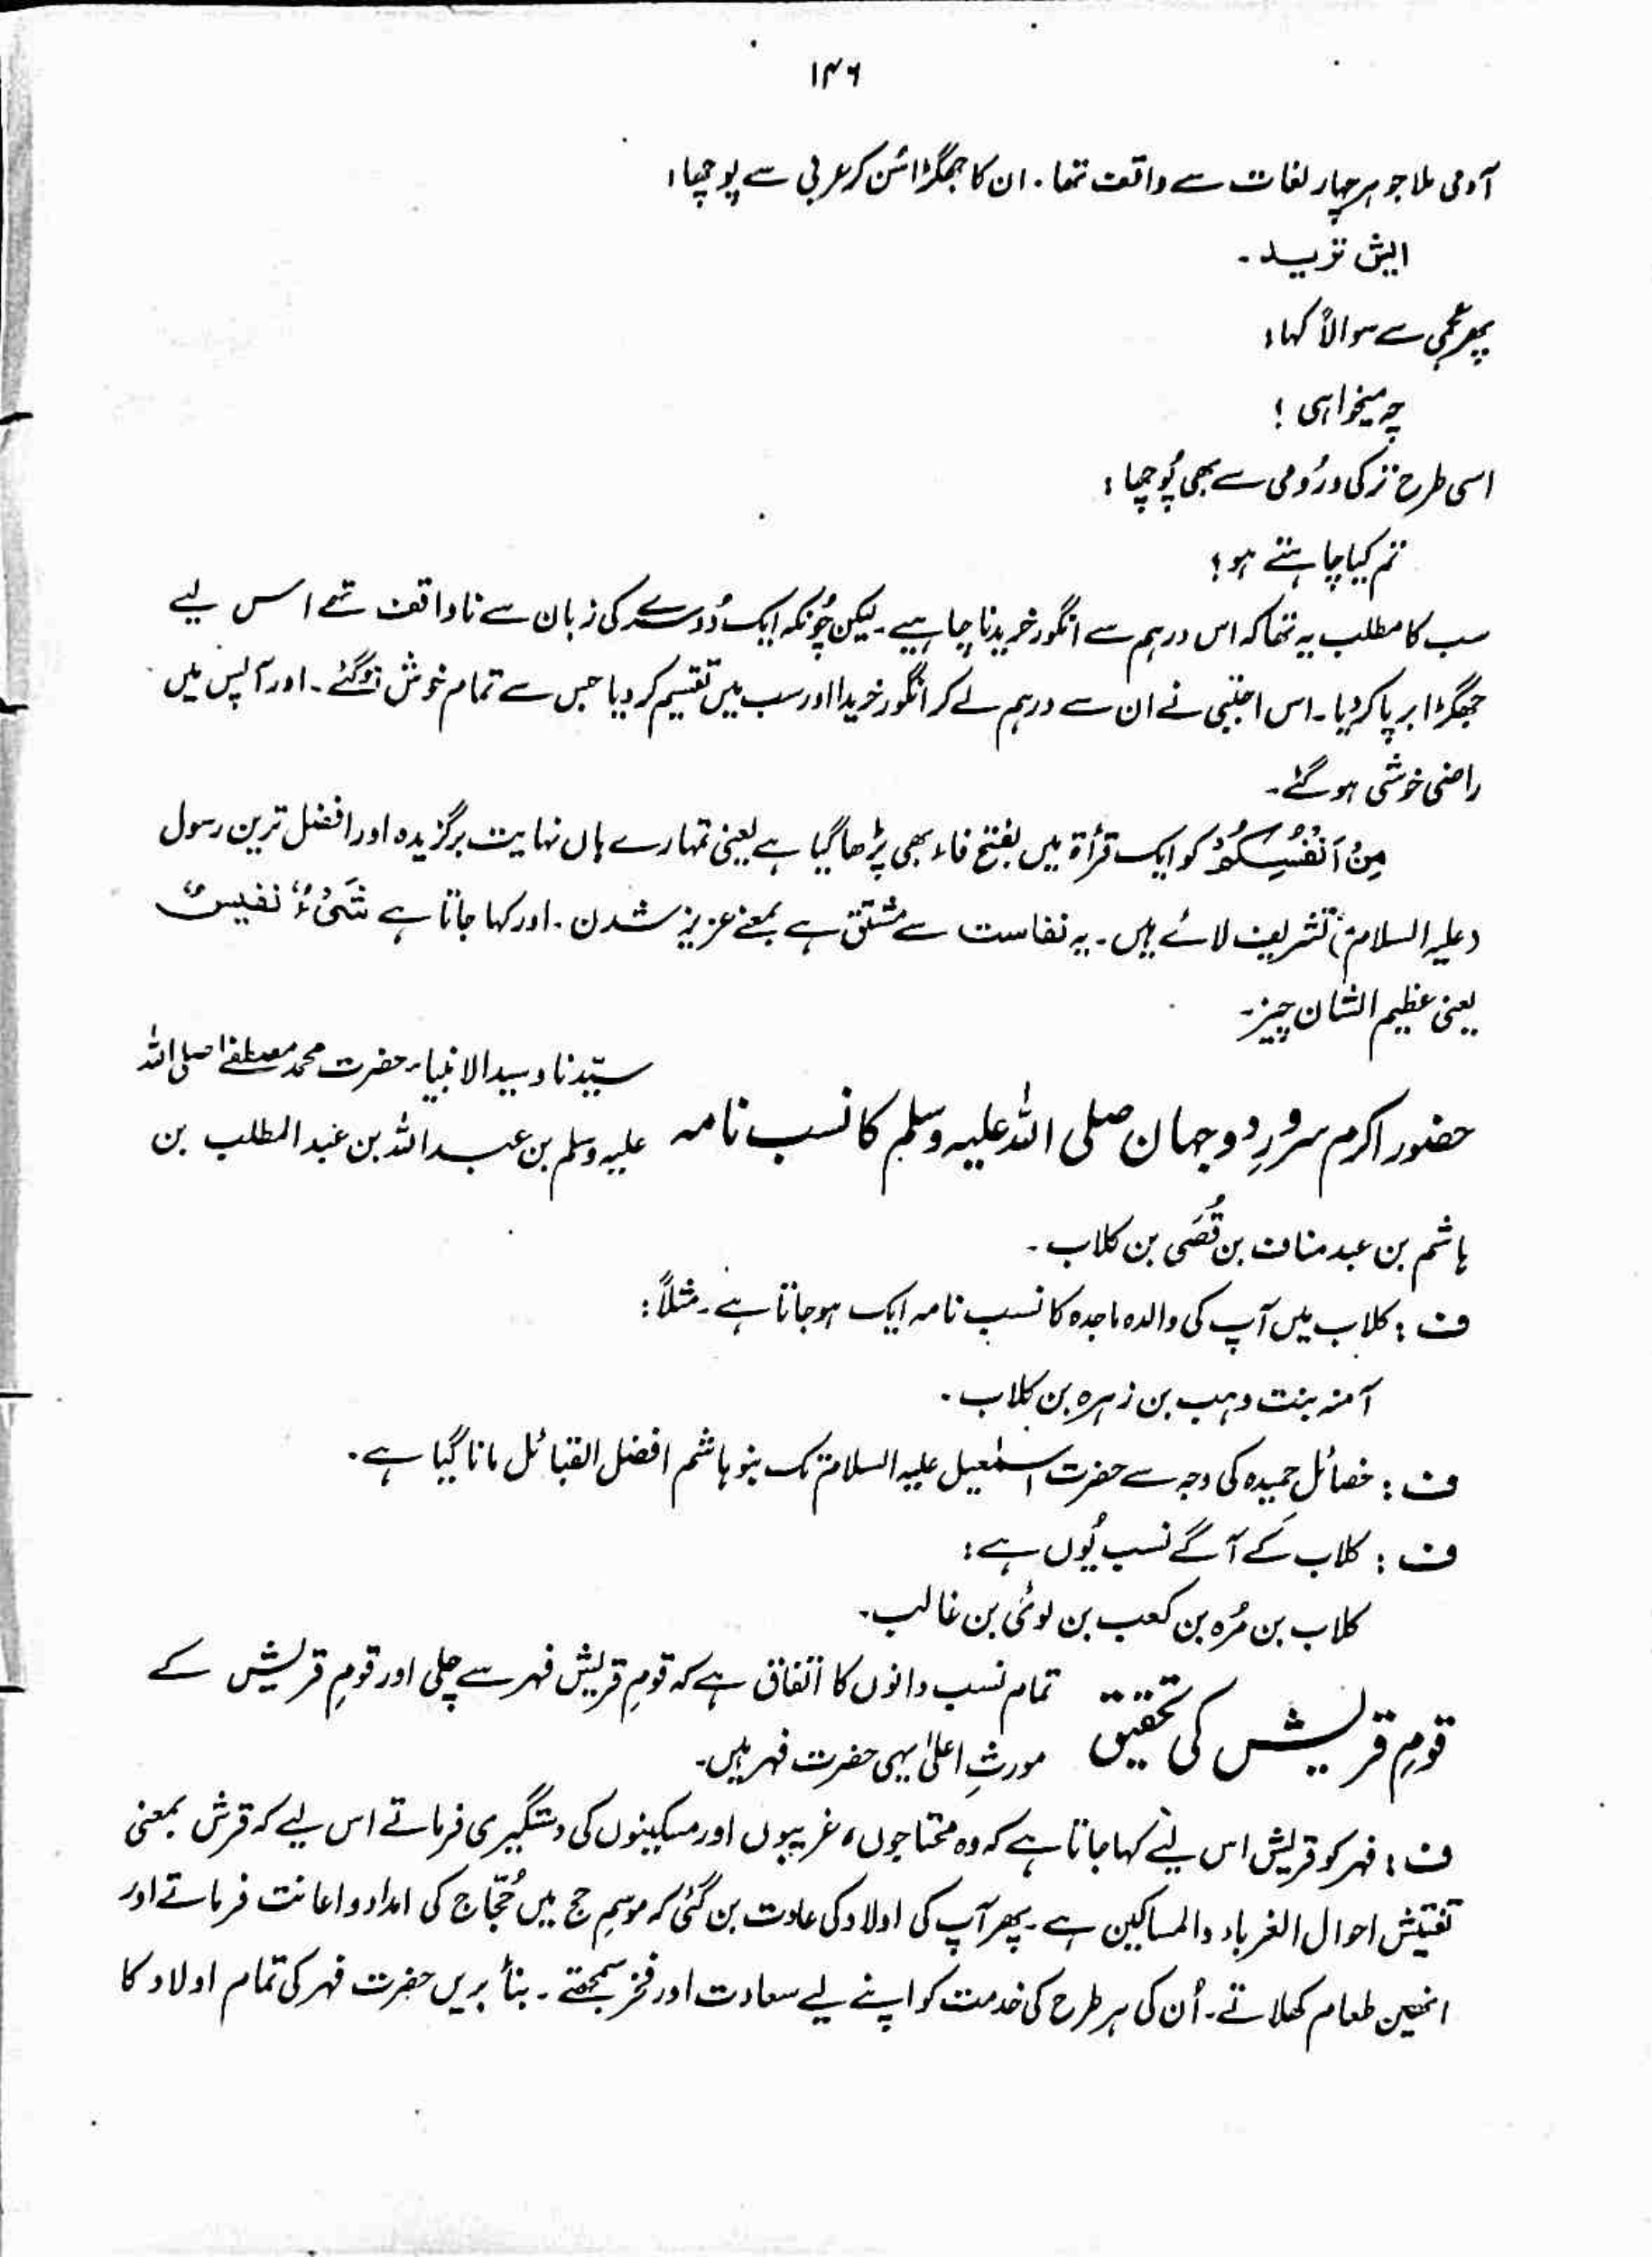 ۱۴۶
آدمی ملا جو ہر چہار لغات سے واقف تھا۔ ان کا جھگڑا سُن کر عربی سے پوچھا:
ایش ترید۔
پھر عجمی سے سوالاً کہا:
چہ میخواہی؟
اسی طرح ترکی و رُومی سے بھی پُوچھا:
تم کیا چاہتے ہو؟
سب کا مطلب یہ تھا کہ اس درہم سے انگور خریدنا چاہیے۔ لیکن چُونکہ ایک دُوسرے کی زبان سے ناواقف تھے اس لیے
جھگڑا برپا کر دیا۔ اس اجنبی نے ان سے درہم لے کر انگور خریدا اور سب میں تقسیم کر دیا جس سے تمام خوش ہو گئے۔ اور آپس میں
راضی خوشی ہو گئے۔
مِنْ اَنْفُسِكُمْ کو ایک قرأۃ میں بفتح فاء بھی پڑھا گیا ہے یعنی تمہارے ہاں نہایت برگزیدہ اور افضل ترین رسول
(علیہ السلام) تشریف لائے ہیں۔ یہ نفاست سے مشتق ہے بمعنے عزیز شدن۔ اور کہا جاتا ہے شَیْءٌ نفیسٌ
یعنی عظیم الشان چیز۔
حضور اکرم سرورِ دو جہان صلی اللہ علیہ وسلم کا نسب نامہ
سیّدنا و سید الانبیاء حضرت محمد مصطفےٰ صلی اللہ
علیہ وسلم بن عبد اللہ بن عبد المطلب بن
ہاشم بن عبد مناف بن قُصَی بن کلاب۔
ف: کلاب میں آپ کی والدہ ماجدہ کا نسب نامہ ایک ہو جاتا ہے۔ مثلاً:
آمنہ بنت وہب بن زہرہ بن کلاب۔
ف: خصائلِ حمیدہ کی وجہ سے حضرت اسمٰعیل علیہ السلام تک بنو ہاشم افضل القبائل مانا گیا ہے۔
ف: کلاب کے آگے نسب یُوں ہے:
کلاب بن مُرہ بن کعب بن لوئی بن غالب۔
قومِ قریش کی تحقیق
تمام نسب دانوں کا اتفاق ہے کہ قومِ قریش فہر سے چلی اور قومِ قریش کے
مورثِ اعلیٰ یہی حضرت فہر ہیں۔
ف: فہر کو قریش اس لیے کہا جاتا ہے کہ وہ محتاجوں، غریبوں اور مسکینوں کی دستگیری فرماتے اس لیے کہ قرش بمعنی
تفتیش احوال الغرباء والمساکین ہے۔ پھر آپ کی اولاد کی عادت بن گئی کہ موسمِ حج میں حُجّاج کی امداد و اعانت فرماتے اور
انھیں طعام کھلاتے۔ اُن کی ہر طرح کی خدمت کو اپنے لیے سعادت اور فخر سمجھتے۔ بنأ بریں حضرت فہر کی تمام اولاد کا